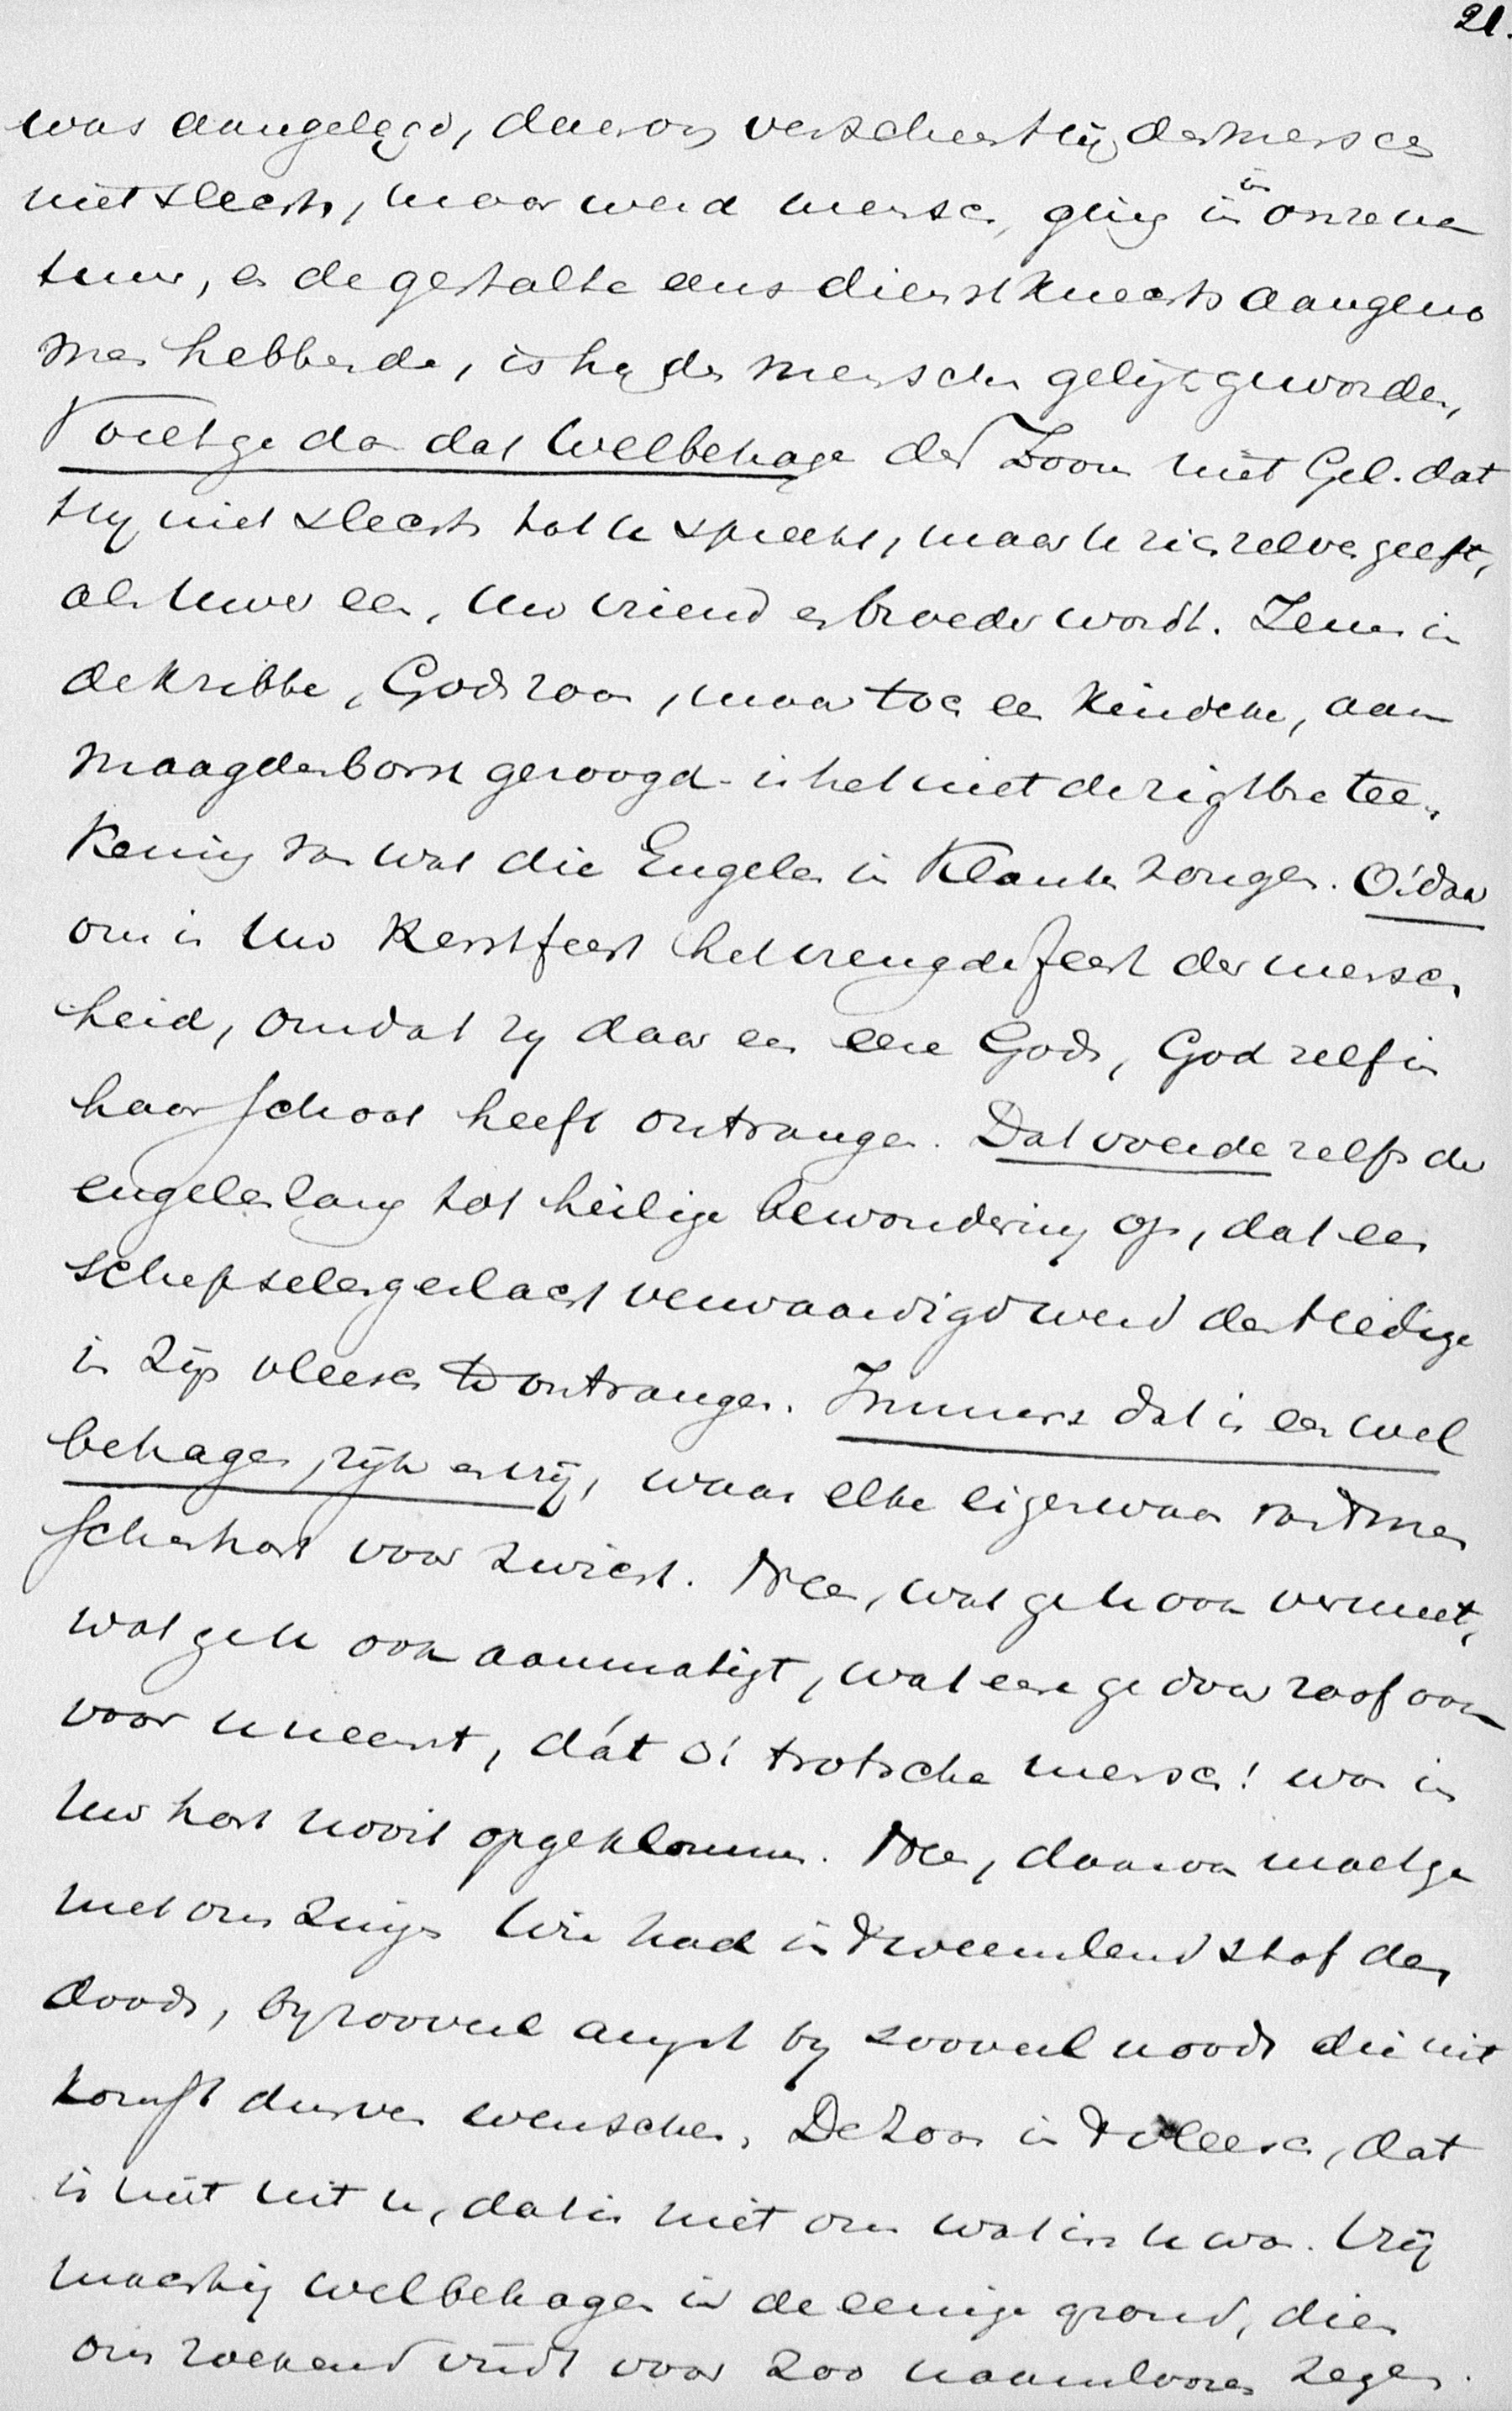 21.
was aangelegd, daarom verscheen Hij den mensch
niet slechts, maar werd mensch, ging in in onze na
tuur, en de gestalte eens dienstknechts aangeno
men hebbende, is hy den menschen gelijk geworden,
Voelt ge dan dat welbehage des Zoons niet Gel. dat
Hy niet slechts tot u spreekt, maar u zich zelven geeft,
als uwer een, uw vriend en broeder wordt. Jezus in
de kribbe, Gods zoon, maar toch een kindeke, aan
maagdenborst gezoogd - is het niet de zigtbre tee-
kening van wat die Engelen in klanken zongen. O! daar
om is uw Kerstfeest het vreugdefeest der mensch
heid, omdat zy daar een eere Gods, God zelf in
haar schoot heeft ontvangen. Dat voerde zelfs de
engelenzang tot heilige bewondering op, dat een
schepselengeslacht verwaardigd werd den Heilige
in zijn vleesch te ontvangen. Immers dat is een wel
behagen, rijk en vrij, waar elke eigenwaan van 't men
schenhart voor zwicht. Nee, wat ge u ook vermeet,
wat ge u ook aanmatigt, wat eere ge door roof ook
voor u neemt, dát o! trotsche mensch! was in
uw hart nooit opgeklommen. Nee, daarvan moet ge
met ons zingen Wie had in 't weemlend stof des
doods, by zooveel angst by zooveel noods die uit
komst durven wenschen, De Zoon in 't vleesch, dat
is niet uit u, dat is niet om wat in u was. Vrij
machtig welbehagen is de eenige grond, dien
ons zoekend vindt voor zoo naamloozen zegen.